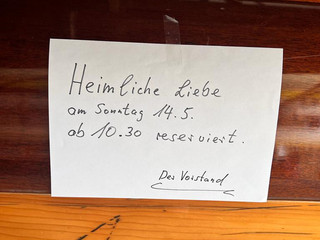 Heimliche Liebe
am Sonntag 14.5.
ab 10.30 reserviert.
Der Vorstand